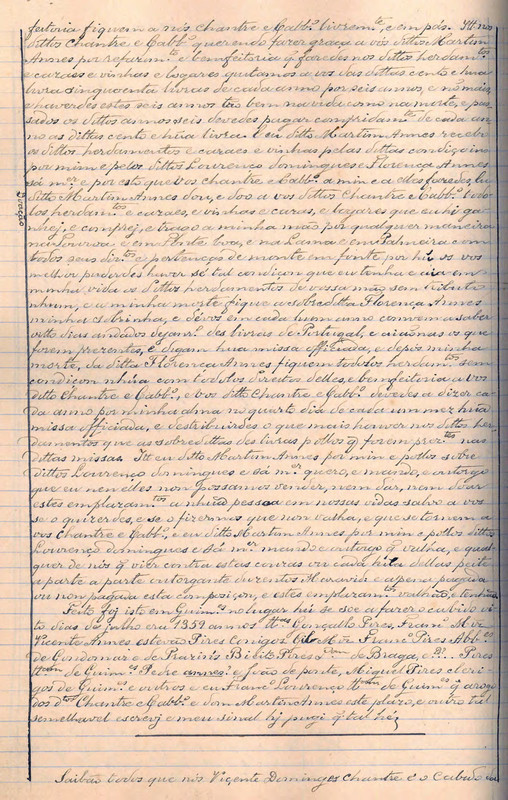 feitoria fiquem a nós Chantre e Cabb.º livrem.te, e em pós. Itt nós
dittos Chantre e Cabb.º querendo fazer graça a vós ditto Martim
Annes por refurim.to e bemfeitoria q̃ faredes nos dittos herdam.tos
e cazaes e vinhas e logares quitamos a vós das dittas cento e huã
livra sinquoenta livras de cada anno por seis annos, e nó mais
e haverdes estes seis annos tão bem na vida como na morte, e pas
sados os dittos annos seis devedes pagar compridam.te de cada an
no as dittas cento e húa livra. E eu ditto Martim Annes recebo
os dittos herdamentos e cazaes e vinhas pellas dittas condições
por mim e pelos dittos Lourenço domingues e Florença Annes
sá m.er e por esto que vós Chantre e Cabb.º a mim e a elles faredes, Eu
ditto Martim Annes dou, e doo a vós dittos Chantre e Cabb.º todo
los herdam.tos e cazaes, e vinhas e cazas, e logares que eu hei ga
nhej, e comprej, e trago a minha mão por qualquer maneira
na Lourosa e em Fonte boa, e na Lasma e em Salmeira com
todos seus dir.tos e pertenças de monte em fonte por hu os vós
melhor puderdes haver so tal condiçom que eu tenha e aia em
minha vida os dittos herdamentos de vossa mão sem tributo
nhum, e a minha morte fique a sobreditta Florença Annes
minha sobrinha, e dé vós em cada huum anno convem a saber
outo dias andados de Janr.º des livras de Portugal, e aiamas os que
forem prezentes, e digam hua missa officiada, e depós minha
morte, da ditta Florença Annes fiquem todolos herdam.tos sem
condiçon nhúa com todolos direitos delles, e bemfeitoria a vós
ditto Chantre e Cabb.º, e vós ditto Chantre e Cabb.º devedes a dizer ca
da anno por minha alma no quarto dia de cada um mez hua
missa officiada, e destribuirdes o que mais honver nos dittos her
damentos que as sobredittas des livras pollos q̃ forem prez.tes nas
dittas missas. Itt eu ditto Martim Annes por mim e pollos sobre
dittos Lourenço domingues e sá m.er quero, e mando, e outorgo
que eu nem elles non possamos vender, nem dar, nem doar
estes emplazam.tos a nhuã pessoa em nossas vidas salvo a vós
se o quizerdes, e se o fizermos que non valha, e que se tornem a
vós Chantre e Cabb.º, e eu ditto Martim Annes por mim e pollos dittos
Lourenço domingues e sá m.er mando e outorgo q̃ valha, e qual
quer de nós q̃ vier contra estas couzas ou cada húa dellas peite
a parte a parte outorgante duzentos Maravidi e a pena pagada
ou non pagada esta composiçon, e estes emplazam.tos valhão, e tenhão
Feito foj isto em Guim.es no lugar hu se soe a fazer o cabido oi
to dias de Junho era 1359 annos tt.as Gonçallo Pires, Franc.º Miz
Vicente Annes
de Gondomar e de Prazins
de Braga, e
de Guim.es Pedre annes, e João de ponte, Miguel Pires cleri
gos de Guim.es e outros e eu Franc.º Lourenço tt.am de Guim.es q̃ a rogo
dos d.tos Chantre e Cabb.º e dom Martim Annes este plazo, e outro tal
semelhavel escrevj e meu sinal hj pugi q̃ tal hé
Doação
Saibão todos que nós Viçente Domingues Chantre e o Cabido